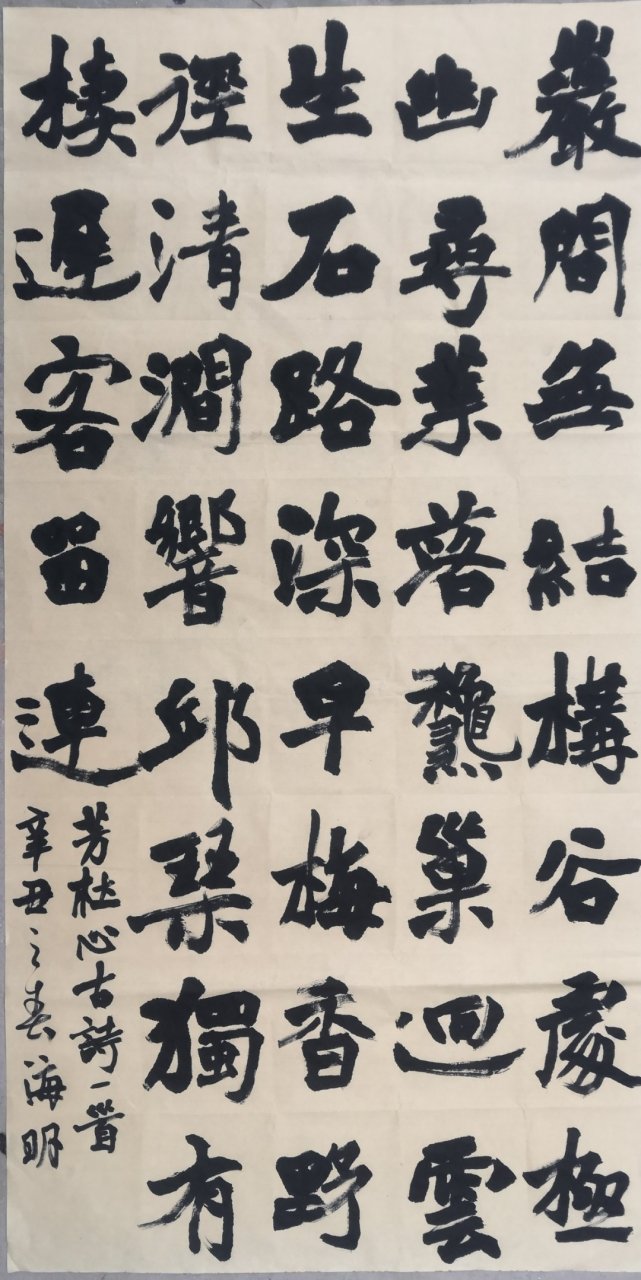 巖間無結構谷處極
幽尋葉落龝巢迥雲
生石路深早梅香野
徑清澗響邱琴獨有
棲遲客留連
芳杜心古詩一首
辛丑之春海明